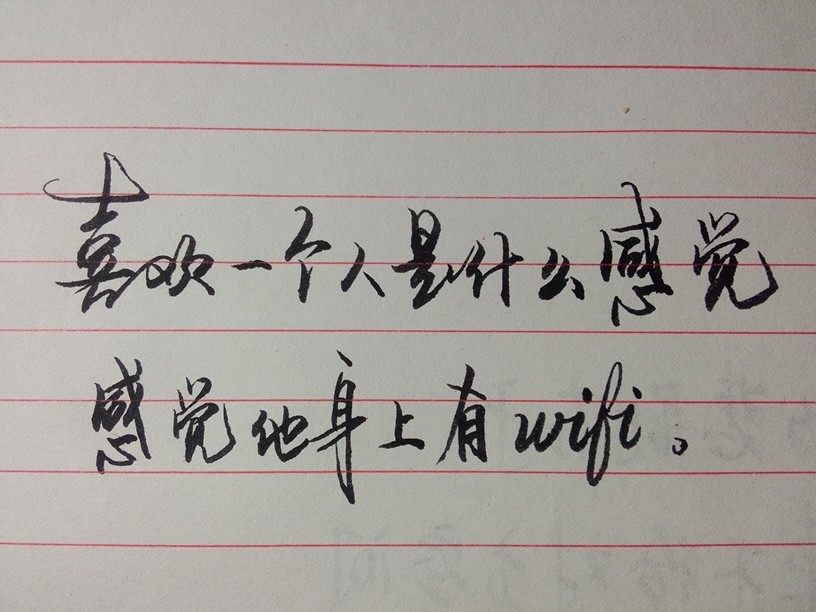 喜欢一个人是什么感觉
感觉他身上有wifi。